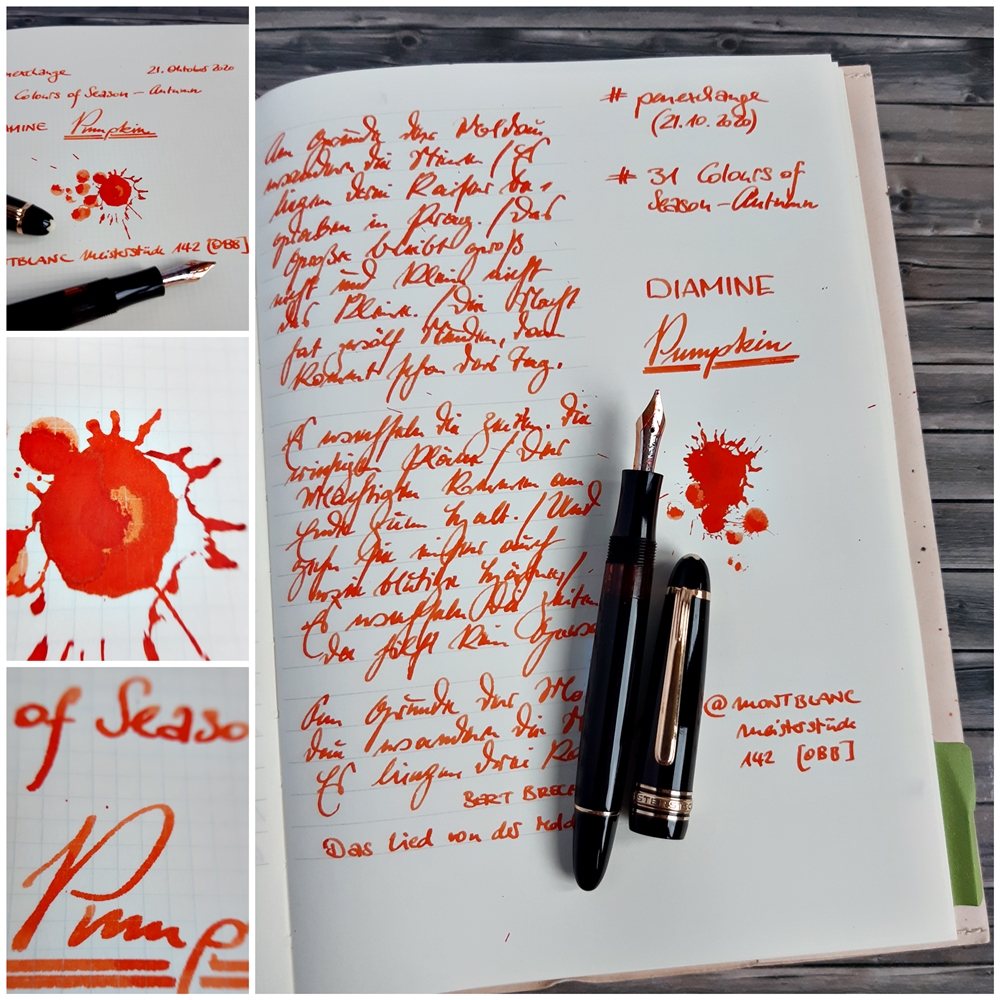 nexchange 21. Oktober 2020
Colours of Season – Autumn
MINE Pumpkin
NTBLANC Meisterstück 142 [OBB]
of Seaso
Pump
Am Grunde der Moldau
wandern die Steine / Es
liegen drei Kaiser be-
graben in Prag. / Das
Große bleibt groß
nicht und klein nicht
das Kleine. / Die Nacht
hat zwölf Stunden, dann
kommt schon der Tag.
Es wechseln die Zeiten. Die
riesigen Pläne / der
Mächtigen kommen am
Ende zum Halt. / Und
gehn sie einher auch
wie blutige Hähne /
Es wechseln die Zeiten
da hilft kein Gewa
Am Grunde der Mo
dau wandern die St
Es liegen drei Ka
BERT BREC
Das Lied von der Mold
# penexchange
(21.10.2020)
# 31 Colours of
Season – Autumn
DIAMINE
Pumpkin
@ MONTBLANC
Meisterstück
142 [OBB]